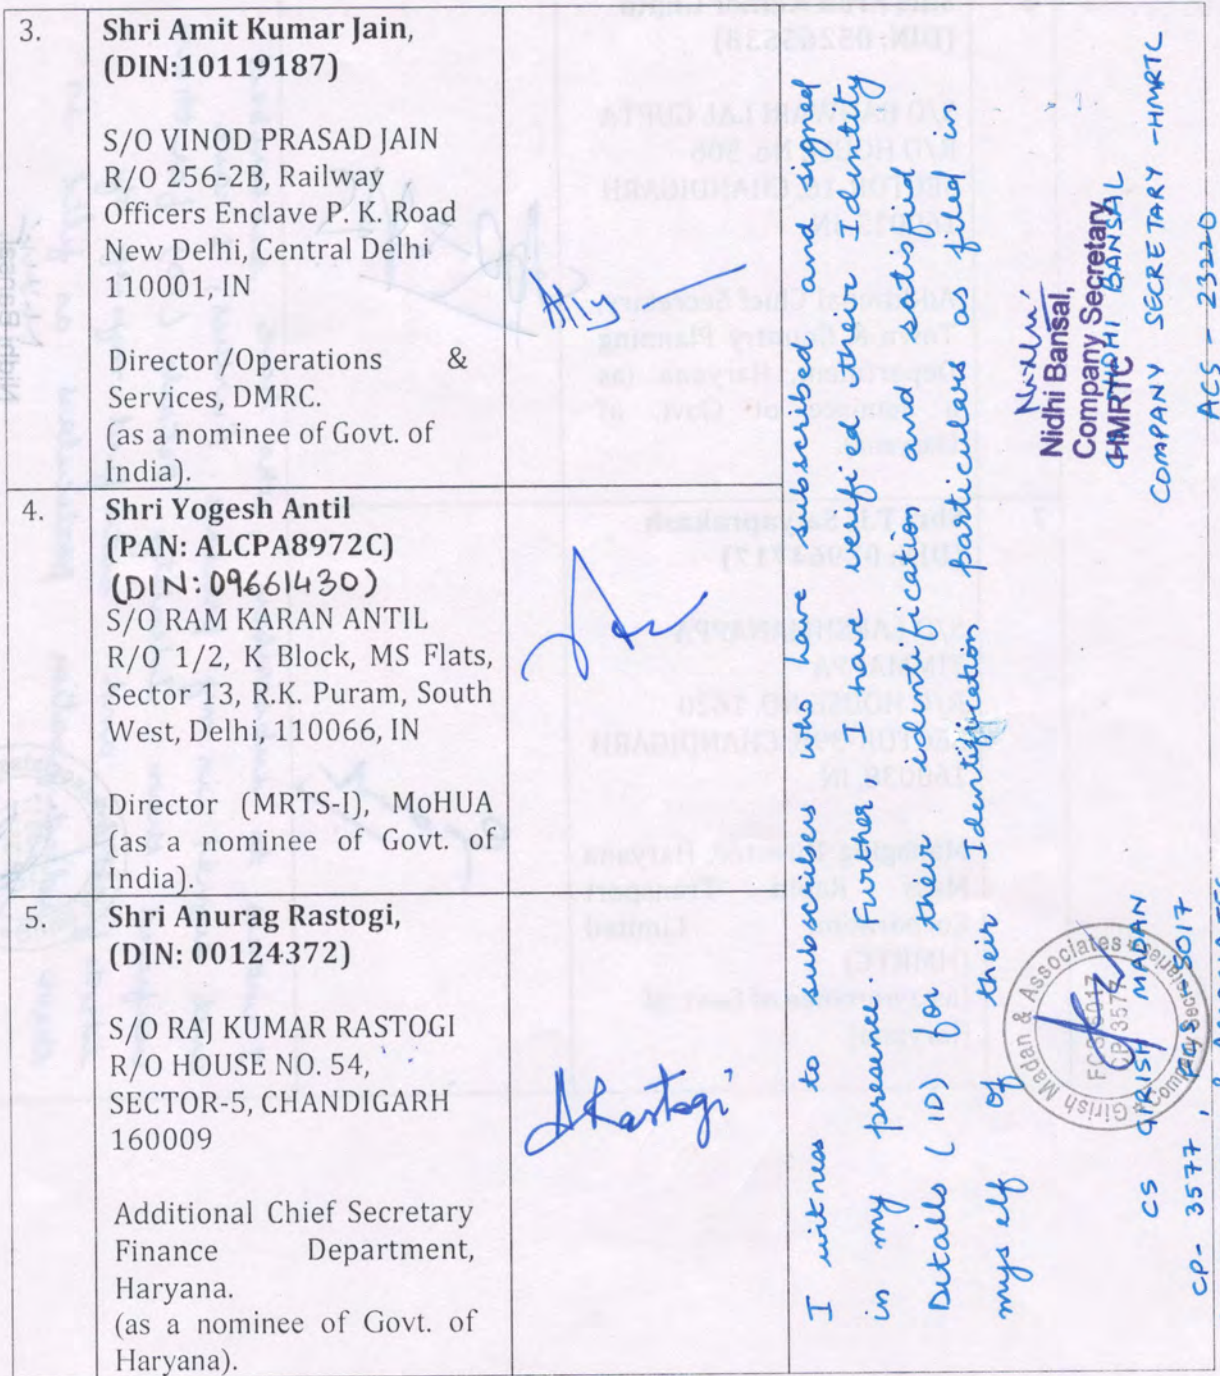 3.
Shri Amit Kumar Jain,
(DIN:10119187)
S/O VINOD PRASAD JAIN
R/O 256-2B, Railway
Officers Enclave P. K. Road
New Delhi, Central Delhi
110001, IN
Director/Operations &
Services, DMRC.
(as a nominee of Govt. of
India).
4.
Shri Yogesh Antil
(PAN: ALCPA8972C)
(DIN: 09661430)
S/O RAM KARAN ANTIL
R/O 1/2, K Block, MS Flats,
Sector 13, R.K. Puram, South
West, Delhi, 110066, IN
Director (MRTS-I), MoHUA
(as a nominee of Govt. of
India).
5.
Shri Anurag Rastogi,
(DIN: 00124372)
S/O RAJ KUMAR RASTOGI
R/O HOUSE NO. 54,
SECTOR-5, CHANDIGARH
160009
Additional Chief Secretary
Finance Department,
Haryana.
(as a nominee of Govt. of
Haryana).
ARastogi
I witness to subscribers who have subscribed and signed
in my presence. Further I have verified their Identity
Details (ID) for their identification and satisfied
myself of their Identification particulars as filed in
Nidhi Bansal,
Company Secretary
HMRTC
NIDHI BANSAL
COMPANY SECRETARY - HMRTC
ACS - 23220
Girish Madan & Associates
Company Secretaries
FCS 5017
CP 3577
CS GIRISH MADAN
CP- 3577, FCS 5017